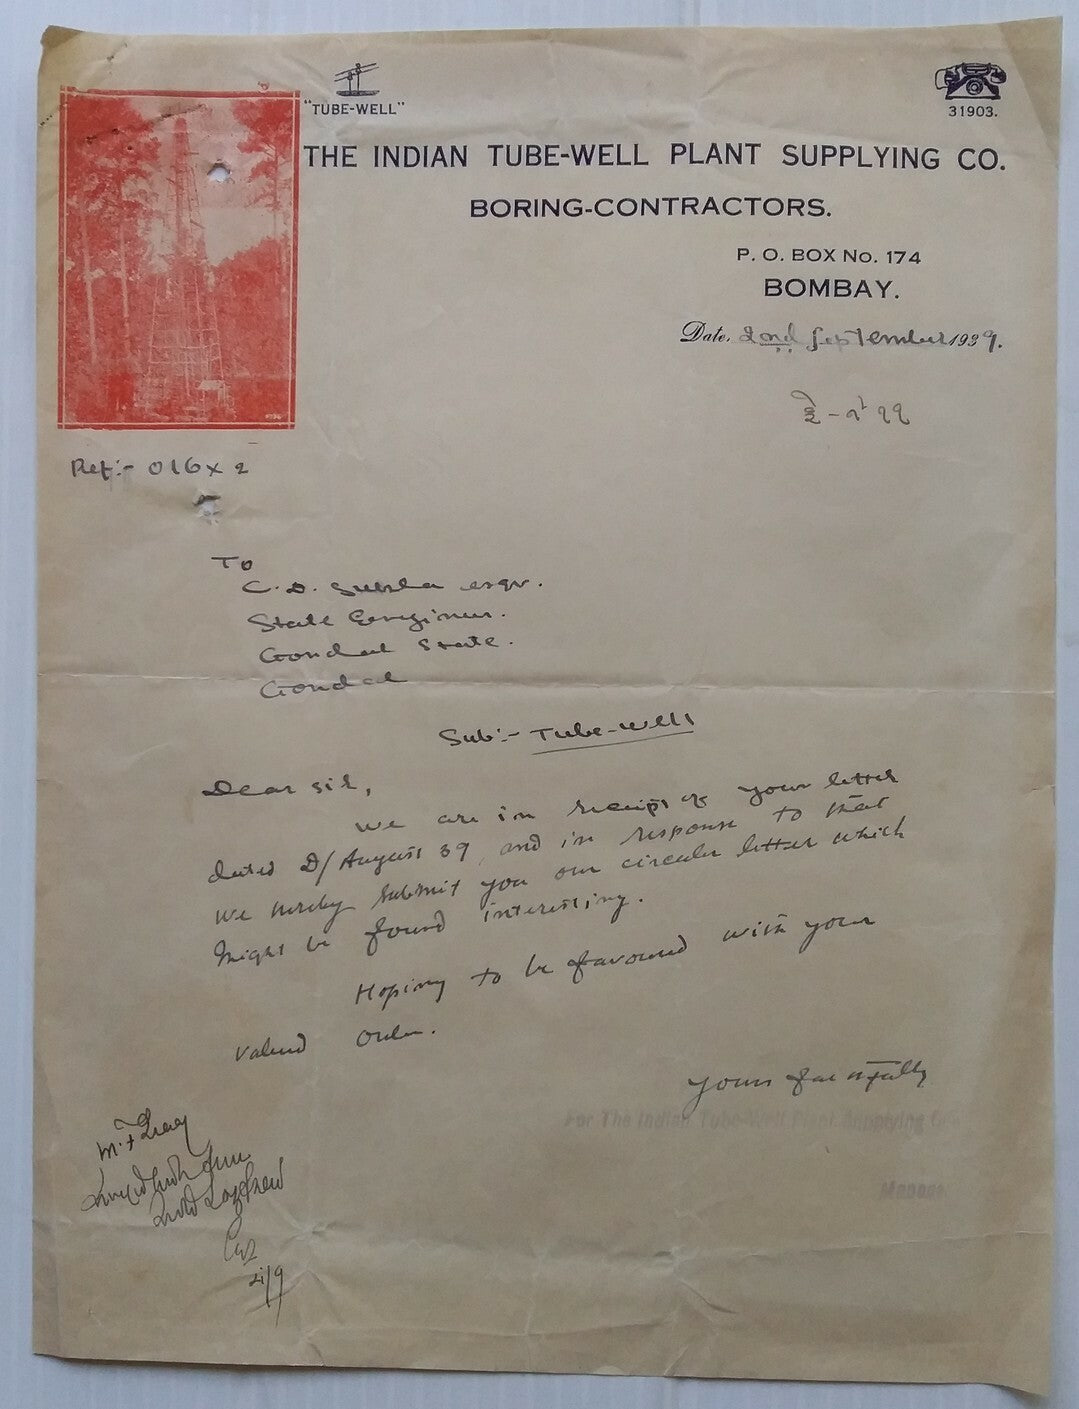 "TUBE-WELL"
31903.
THE INDIAN TUBE-WELL PLANT SUPPLYING CO.
BORING-CONTRACTORS.
P. O. BOX No. 174
BOMBAY.
Date. 2nd September 1939.
Ref:- 016x2
To
C. D. Sukla esqr.
State Engineer.
Gondal State.
Gondal
Sub:- Tube-Well
Dear Sir,
We are in receipt of your letter
dated D/ August 39, and in response to that
we hereby submit you our circular letter which
might be found interesting.
Hoping to be favoured with your
valued order.
Yours faithfully
For The Indian Tube-Well Plant Supplying Co.
21/9